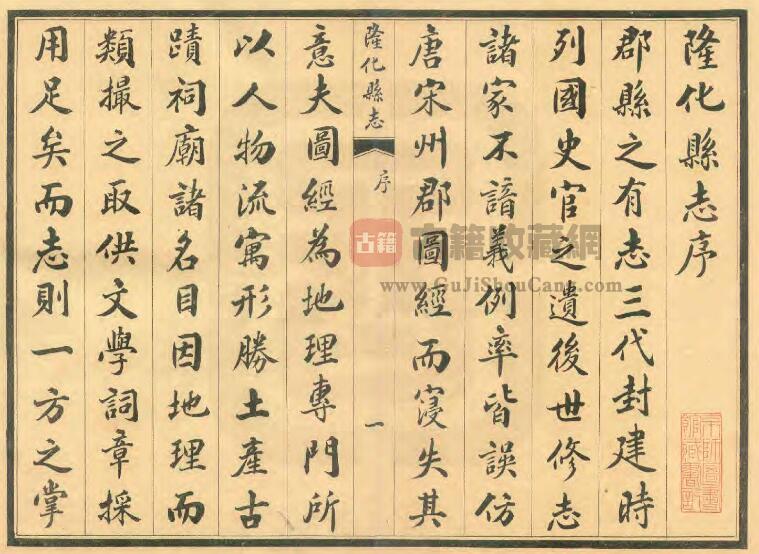 隆化縣志序
郡縣之有志三代封建時
列國史官之遺後世修志
諸家不諳義例率皆誤仿
唐宋州郡圖經而寖失其
隆化縣志
序
一
意夫圖經為地理專門所
以人物流寓形勝土產古
蹟祠廟諸名目因地理而
類撮之取供文學詞章採
用足矣而志則一方之掌
古籍
古籍收藏網
www.GuJiShouCang.com